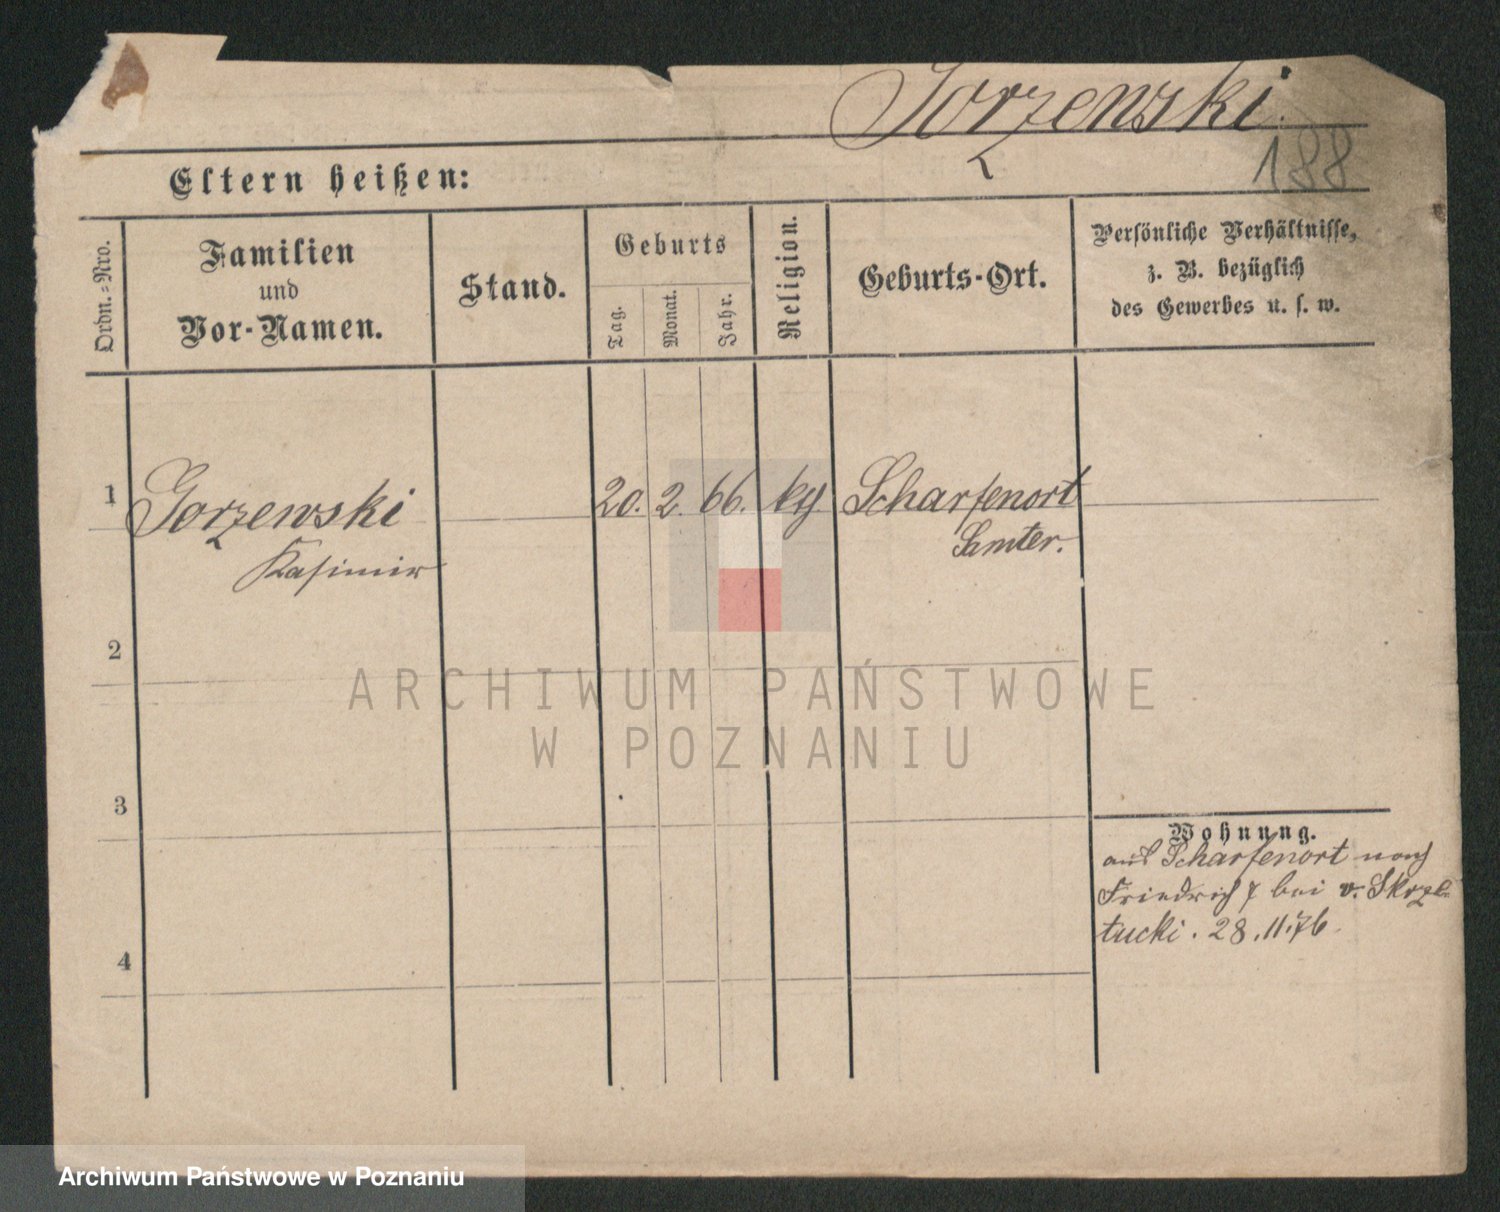 Gorzenski.
188
Eltern heißen:
Ordn.-Nro.
Familien
und
Vor-Namen.
Stand.
Geburts
Tag.
Monat.
Jahr.
Religion.
Geburts-Ort.
Persönliche Verhältnisse,
z. B. bezüglich
des Gewerbes u. s. w.
1 Gorzewski 20. 2. 66. kth Scharfenort
Kasimir Samter.
2
3
4
Wohnung.
aus Scharfenort nach
Friedrich 7 bei v. Skrze-
tucki. 28.11.76.
ARCHIWUM PAŃSTWOWE
W POZNANIU
Archiwum Państwowe w Poznaniu